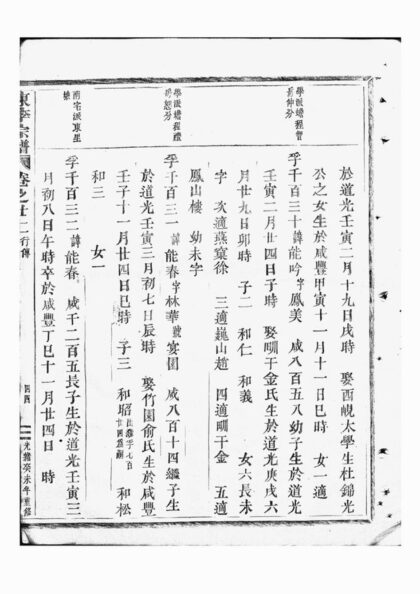 學派璿程曾
房仲分
於道光壬寅二月十九日戌時　娶西峴太學生杜錦光
公之女生於咸豐甲寅十一月十一日巳時　女一適
孚千百三十諱能吟字鳳美　咸八百五八幼子生於道光
壬寅二月廿四日子時　娶㽦干金氏生於道光庚戌六
月廿九日卯時　子二　和仁　和義　女六長未
字　次適燕窠徐　三適巍山趙　四適㽦干金　五適
鳳山樓　幼未字
學派璿程禮
房恕分
孚千百三一諱能春字林華號宴園　咸八百十四繼子生
於道光壬寅三月初七日辰時　娶竹園俞氏生於咸豐
壬子十一月廿四日巳時　子三　和昭　和松
和三　女一
南宅派東星
孚千百三二諱能春　咸千二百五長子生於道光壬寅三
月初八日午時卒於咸豐丁巳十一月廿四日　時
宗譜
卷之廿二
行傳
光緒癸未年重修